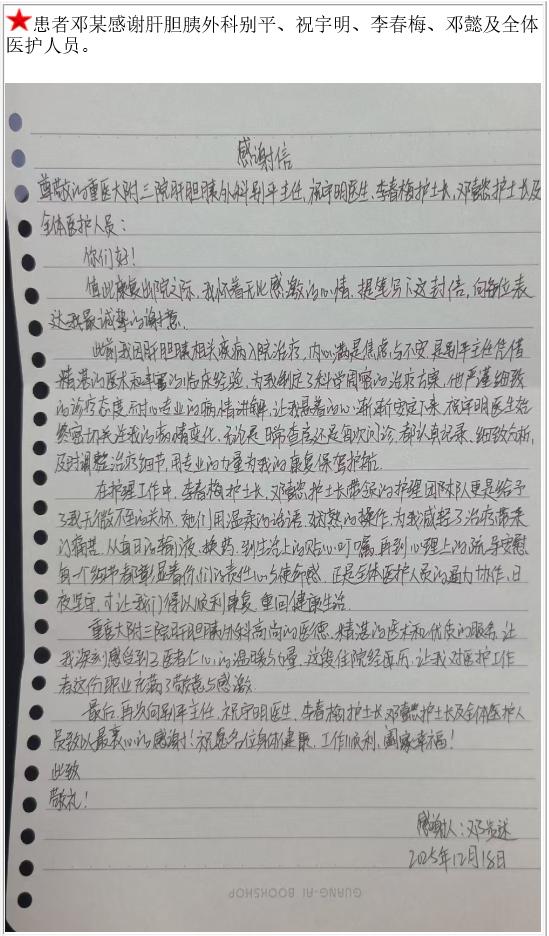 ★患者邓某感谢肝胆胰外科别平、祝宇明、李春梅、邓懿及全体
医护人员。
感谢信
尊敬的重医大附三院肝胆胰外科别平主任,祝宇明医生、李春梅护士长,邓懿护士长及
全体医护人员:
你们好!
值此康复出院之际,我怀着无比感激的心情,提笔写下这封信,向各位表
达我最诚挚的谢意.
此前我因肝胆胰相关疾病入院治疗,内心满是焦虑与不安,是别平主任凭借
精湛的医术和丰富的临床经验,为我制定了科学周密的治疗方案,他严谨细致
的诊疗态度,耐心专业的病情讲解,让我悬着的心渐渐安定下来,祝宇明医生始
终密切关注我的病情变化,无论是日常查房还是每次问诊,都认真记录、细致分析,
及时调整治疗细节,用专业的力量为我的康复保驾护航.
在护理工作中,李春梅护士长、邓懿护士长带领的护理团队更是给予
了我无微不至的关怀.她们用温柔的话语,娴熟的操作,为我减轻了治疗带来
的痛苦.从每日的输液、换药,到生活上的贴心叮嘱,再到心理上的疏导安慰
每一个细节都彰显着你们的责任心与使命感.正是全体医护人员的通力协作,日
夜坚守,才让我们得以顺利康复,重回健康生活.
重医大附三院肝胆胰外科高尚的医德,精湛的医术和优质的服务,让
我深刻感受到了医者仁心的温暖与力量.这段住院经历,让我对医护工作
者这份职业充满了敬意与感激.
最后,再次向别平主任,祝宇明医生、李春梅护士长邓懿护士长及全体医护人
员致以最衷心的感谢!祝愿各位身体健康,工作顺利,阖家幸福!
此致
敬礼!
感谢人:邓
2025年12月18日
GUANG-AI BOOKSHOP